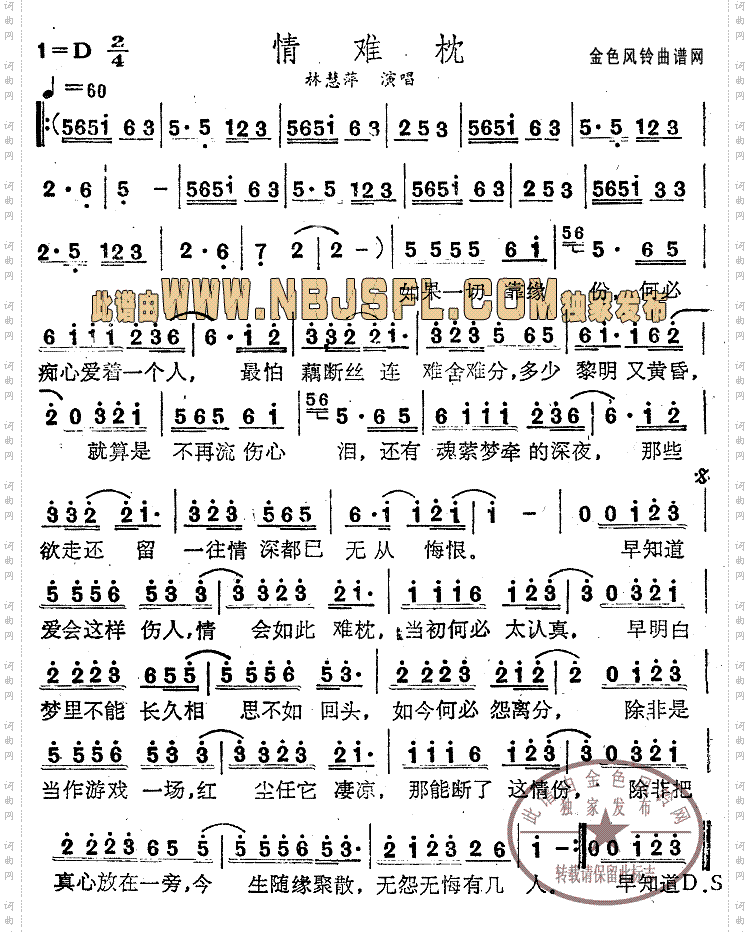 1=D 2/4 情 难 枕 金色风铃曲谱网
林慧萍 演唱
♩=60
‖:(565i 63 | 5·5 123 | 565i 63 | 253 | 565i 63 | 5·5 123 |
2·6 | 5 - | 565i 63 | 5·5 123 | 565i 63 | 253 | 565i 33 |
2·5 123 | 2·6 | 7 2 | 2 -) | 5 555 6i | 56 5· 65 |
如果一切 靠缘 份, 何必
此谱由WWW.NBJSPL.COM独家发布
6 iii 236 | 6· i2 | 332 2i· | 323 5 65 | 6i· i62 |
痴心爱着一个人, 最怕 藕断丝 连 难舍难分,多少 黎明又黄昏,
2 0 32i | 565 6i | 56 5· 65 | 6 iii 236 | 6· i2 |
就算是 不再流 伤心 泪,还有 魂萦梦牵的深夜, 那些
332 2i· | 323 565 | 6·i i2i | i - | 0 0 i23 |
欲走还 留 一往情 深都已 无从 悔恨。 早知道
5 5556 53 3 | 3 323 2i· | i iii6 i23 | 3 0 32i |
爱会这样 伤人,情 会如此 难枕,当初何必 太认真, 早明白
2 2223 655 | 5 5556 53· | 2 2223 2i2 | 2 0 i23 |
梦里不能 长久相 思不如 回头, 如今何必 怨离分, 除非是
5 5556 53 3 | 3 323 2i· | i iii6 i23 | 3 0 32i |
当作游戏 一场,红 尘任它 凄凉, 那能断了 这情份, 除非把
2 2223 65 5 | 5 5556 53· | 2 i23 26 | i -:‖ 0 0 i23 ‖
真心放在一旁,今 生随缘聚散, 无怨无悔有几 人, 早知道D.S
此谱由金色风铃网
独家发布
转载请保留此标志